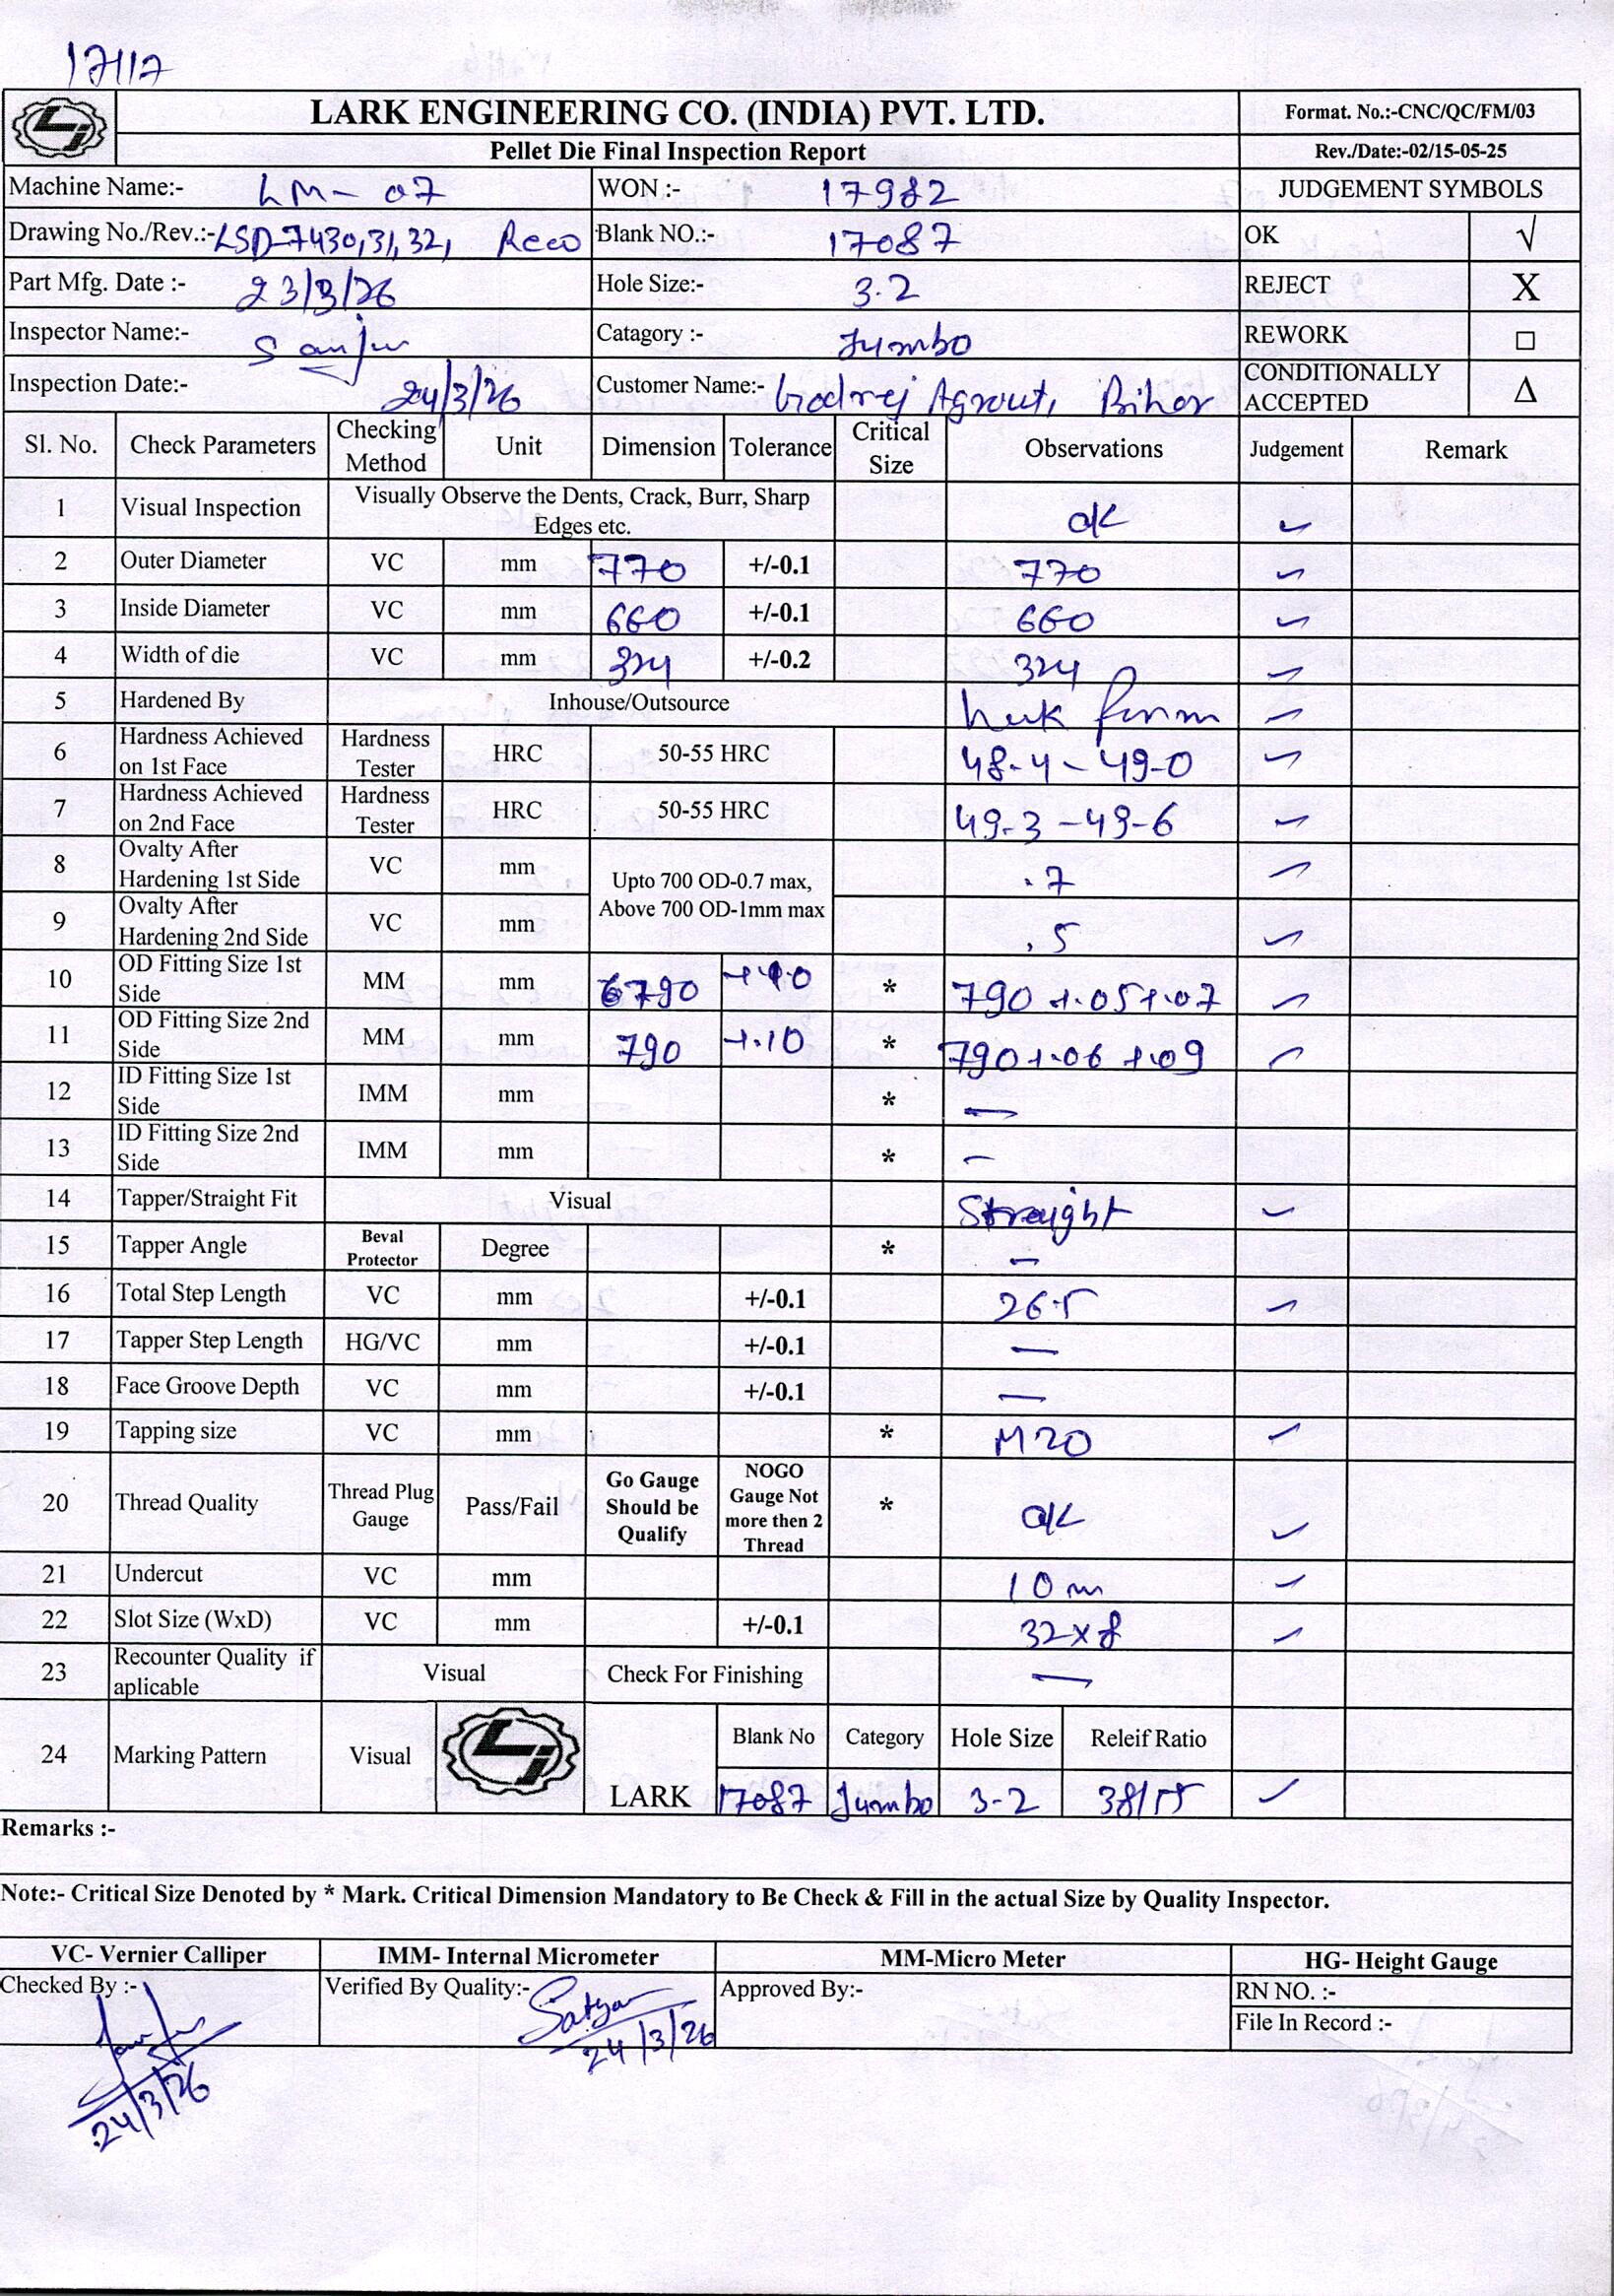 17117
LARK ENGINEERING CO. (INDIA) PVT. LTD.
Format. No.:-CNC/QC/FM/03
Pellet Die Final Inspection Report
Rev./Date:-02/15-05-25
Machine Name:- LM-07 WON :- 17982 JUDGEMENT SYMBOLS
Drawing No./Rev.:- LSD-7430,31,32, Reco Blank NO.:- 17087 OK √
Part Mfg. Date :- 23/3/26 Hole Size:- 3.2 REJECT X
Inspector Name:- Sanju Catagory :- Jumbo REWORK □
Inspection Date:- 24/3/26 Customer Name:- Godrej Agrovet, Bihar CONDITIONALLY ACCEPTED Δ
Sl. No. Check Parameters Checking Method Unit Dimension Tolerance Critical Size Observations Judgement Remark
1 Visual Inspection Visually Observe the Dents, Crack, Burr, Sharp Edges etc. ok ✓
2 Outer Diameter VC mm 770 +/-0.1 770 ✓
3 Inside Diameter VC mm 660 +/-0.1 660 ✓
4 Width of die VC mm 324 +/-0.2 324 ✓
5 Hardened By Inhouse/Outsource ✓
6 Hardness Achieved on 1st Face Hardness Tester HRC 50-55 HRC 48.4-49.0 ✓
7 Hardness Achieved on 2nd Face Hardness Tester HRC 50-55 HRC 49.3-49.6 ✓
8 Ovalty After Hardening 1st Side VC mm Upto 700 OD-0.7 max, Above 700 OD-1mm max .7 ✓
9 Ovalty After Hardening 2nd Side VC mm .5 ✓
10 OD Fitting Size 1st Side MM mm 790 +.10 * 790 +.05+.07 ✓
11 OD Fitting Size 2nd Side MM mm 790 +.10 * 790+.06 +.09 ✓
12 ID Fitting Size 1st Side IMM mm * —
13 ID Fitting Size 2nd Side IMM mm * —
14 Tapper/Straight Fit Visual Straight ✓
15 Tapper Angle Beval Protector Degree * —
16 Total Step Length VC mm +/-0.1 26.5 ✓
17 Tapper Step Length HG/VC mm +/-0.1 —
18 Face Groove Depth VC mm +/-0.1 —
19 Tapping size VC mm * M20 ✓
20 Thread Quality Thread Plug Gauge Pass/Fail Go Gauge Should be Qualify NOGO Gauge Not more then 2 Thread * ok ✓
21 Undercut VC mm 10m ✓
22 Slot Size (WxD) VC mm +/-0.1 32x8 ✓
23 Recounter Quality if aplicable Visual Check For Finishing —
24 Marking Pattern Visual LARK Blank No Category Hole Size Releif Ratio
17087 Jumbo 3-2 38/55 ✓
Remarks :-
Note:- Critical Size Denoted by * Mark. Critical Dimension Mandatory to Be Check & Fill in the actual Size by Quality Inspector.
VC- Vernier Calliper IMM- Internal Micrometer MM-Micro Meter HG- Height Gauge
Checked By :- Sanju 24/3/26 Verified By Quality:- Satyam 24/3/26 Approved By:- RN NO. :-
File In Record :-